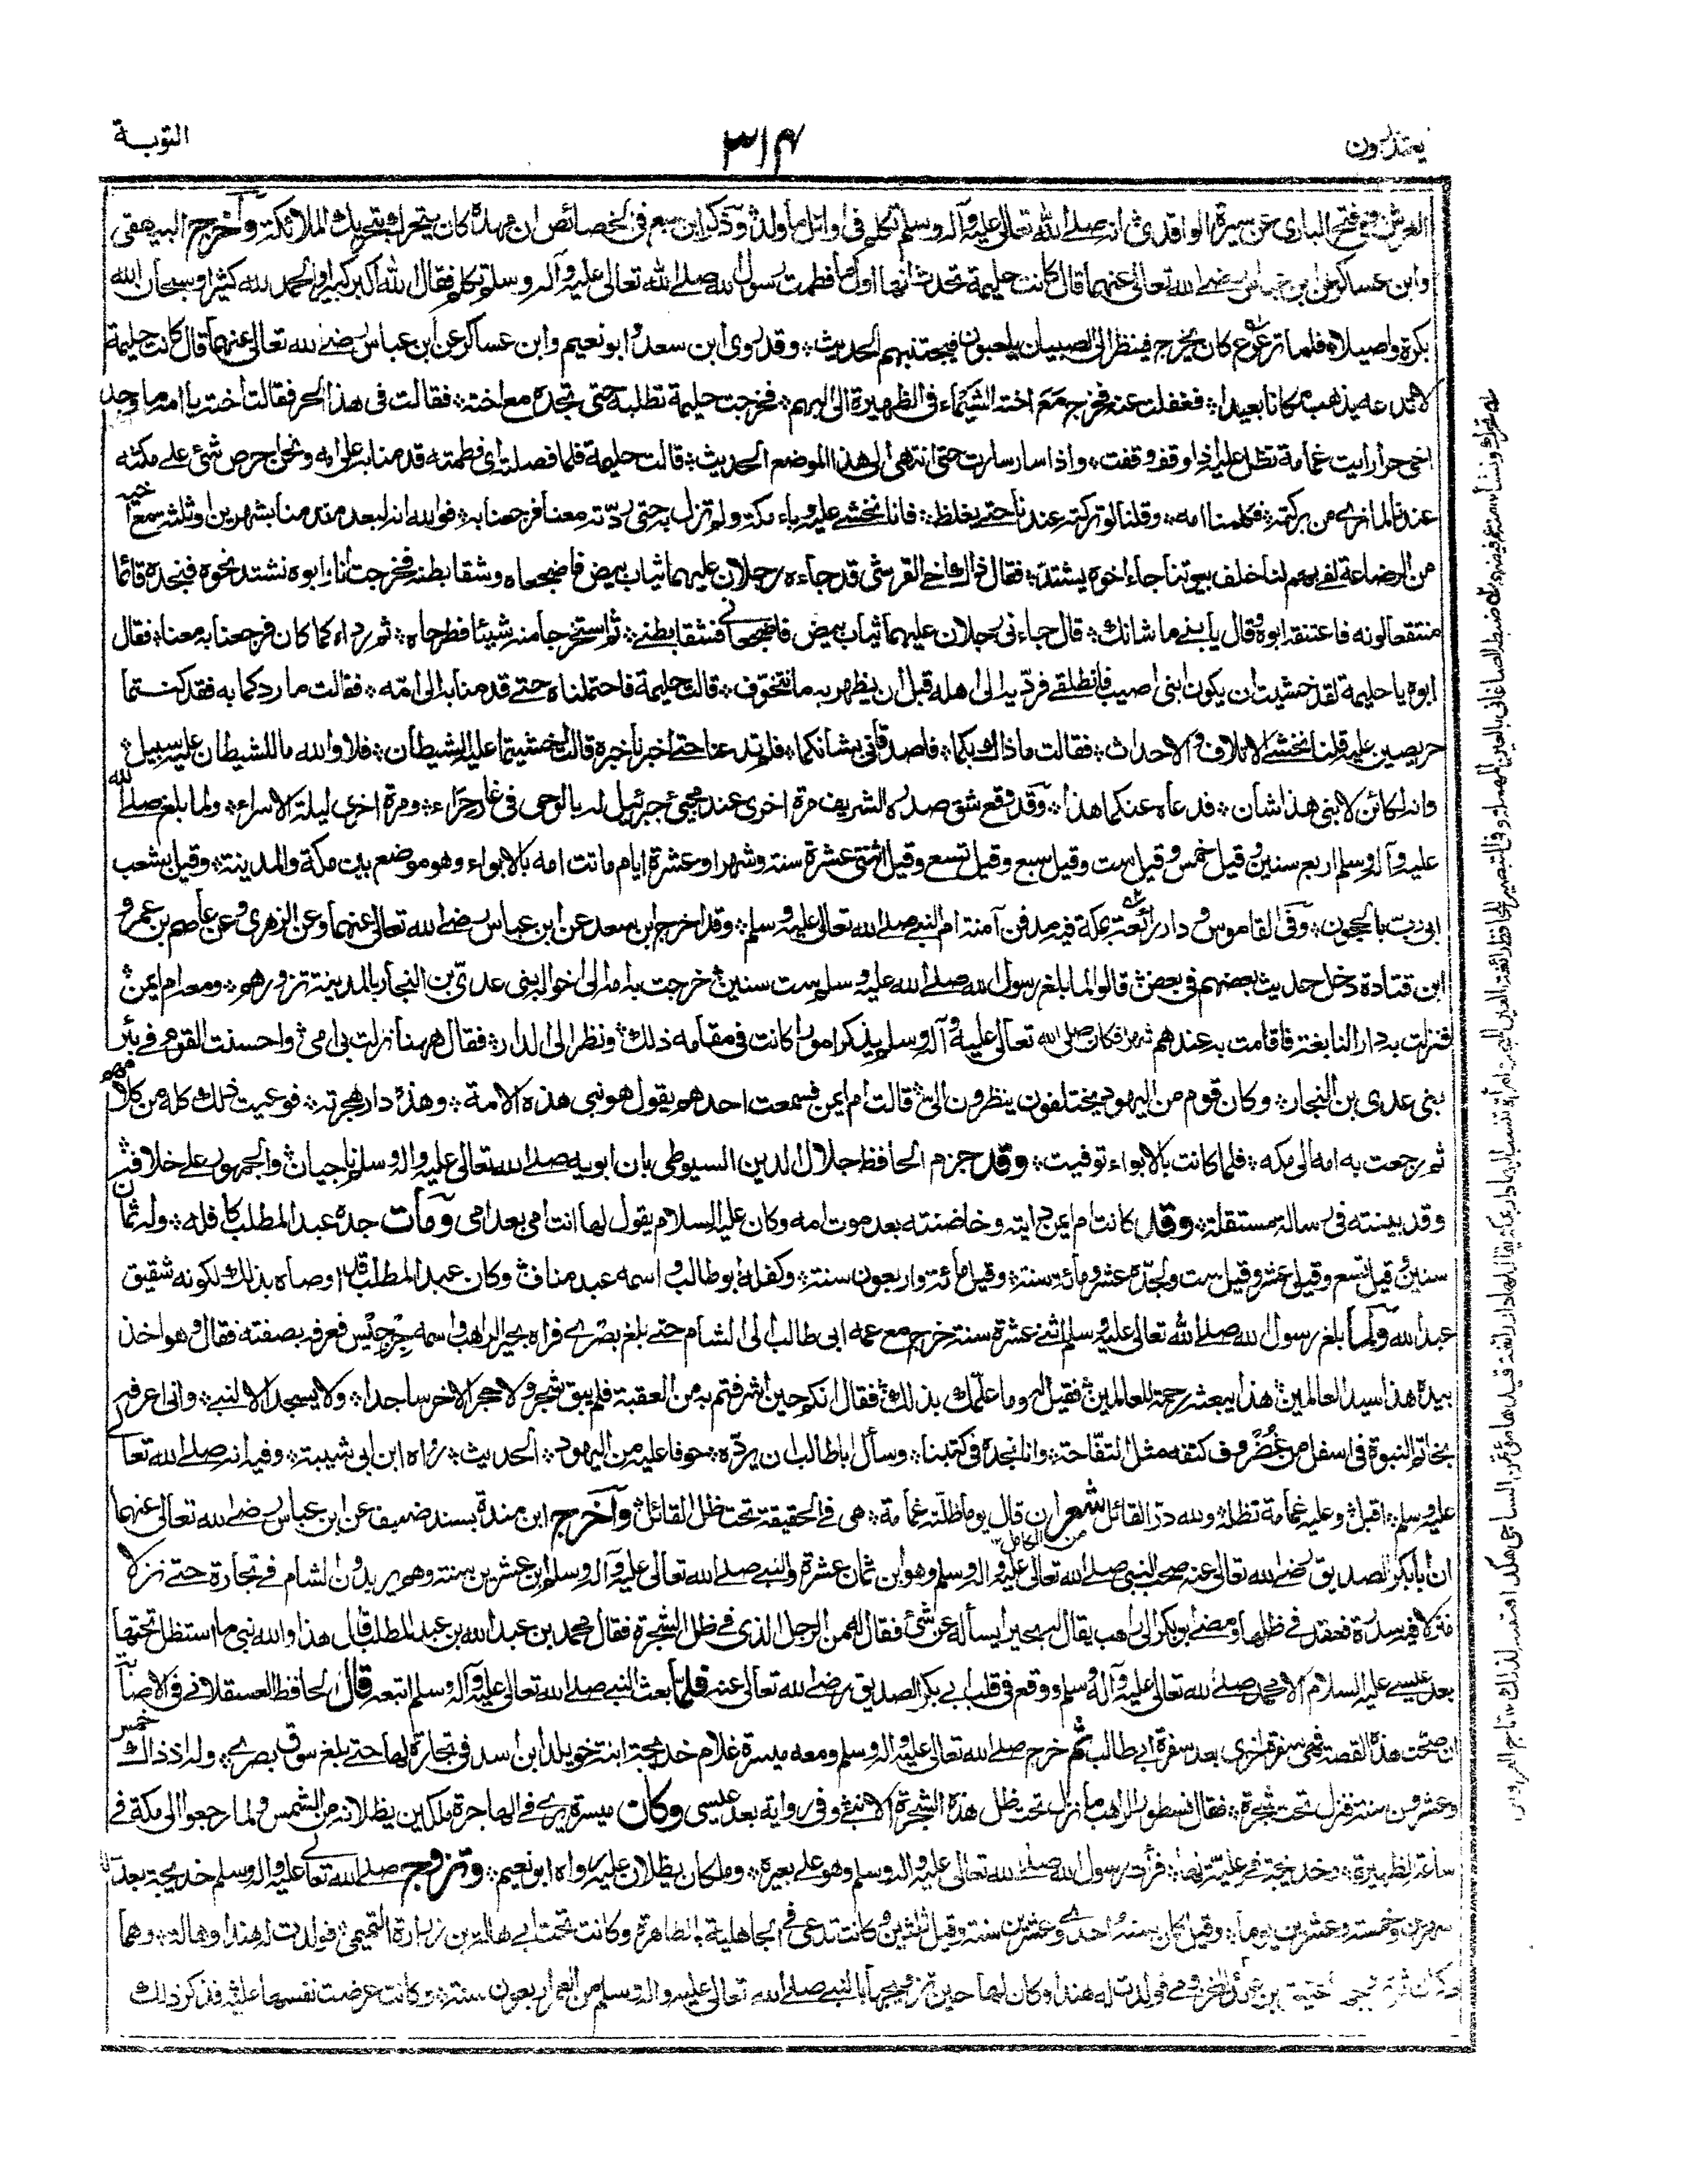 يعتذرون
٣١٤
التوبة
العرش وفي فتح الباري عن سيرة الواقدي انه صلى الله تعالى عليه وآله وسلم تكلم في اوائل ما ولد وذكر ابن سبع في الخصائص ان مهده كان يتحرك بتحريك الملائكة واخرج البيهقي
وابن عساكر عن ابن عباس رضي الله تعالى عنهما قال كانت حليمة تحدث انها اول ما فطمت رسول الله صلى الله تعالى عليه وآله وسلم تكلم فقال الله اكبر كبيرا والحمد لله كثيرا وسبحان الله
بكرة واصيلا فلما ترعرع كان يخرج فينظر الى الصبيان يلعبون فيجتنبهم الحديث وقد روى ابن سعد وابو نعيم وابن عساكر عن ابن عباس رضي الله تعالى عنهما قال كانت حليمة
لا تدعه يذهب مكانا بعيدا فغفلت عنه فخرج مع اخته الشيماء في الظهيرة الى البهم فخرجت حليمة تطلبه حتى تجده مع اخته فقالت في هذا الحر فقالت اخته يا امه ما وجد
اخي حرا رايت غمامة تظل عليه اذا وقف وقفت واذا سار سارت حتى انتهى الى هذا الموضع الحديث قالت حليمة فلما فصلته اي فطمته قدمنا به على امه ونحن احرص شيء على مكثه
عندنا لما نرى من بركته فكلمنا امه وقلنا لو تركته عندنا حتى يغلظ فانا نخشى عليه وباء مكة ولم تزل به حتى ردته معنا فرجعنا به فوالله انه لبعد مقدمنا بشهرين او ثلثة مع اخيه
من الرضاعة لفي بهم لنا خلف بيوتنا جاء اخوه يشتد فقال ذاك اخي القرشي قد جاءه رجلان عليهما ثياب بيض فاضجعاه وشقا بطنه فخرجت انا وابوه نشتد نحوه فنجده قائما
منتقعا لونه فاعتنقه ابوه وقال يا بني ما شانك قال جاءني رجلان عليهما ثياب بيض فاضجعاني فشقا بطني ثم استخرجا منه شيئا فطرحاه ثم رداه كما كان فرجعنا به معنا فقال
ابوه يا حليمة لقد خشيت ان يكون ابني اصيب فانطلقي فرديه الى اهله قبل ان يظهر به ما نتخوف قالت حليمة فاحتملناه حتى قدمنا به الى امه فقالت ما ردكما به فقد كنتما
حريصين عليه قلنا نخشى الاتلاف والاحداث فقالت ما ذاك بكما فاصدقاني شانكما فلم تدعنا حتى اخبرناها خبره قالت اخشيتما عليه الشيطان فلا والله ما للشيطان عليه سبيل
وانه لكائن لابني هذا شان فدعاه عنكما هذا وقد وقع شق صدره الشريف مرة اخرى عند مجيئ جبرئيل له بالوحي في غار حراء ومرة اخرى ليلة الاسراء ولما بلغ صلى الله
عليه وآله وسلم اربع سنين وقيل خمس وقيل ست وقيل سبع وقيل تسع وقيل اثنتي عشرة سنة وشهرا وعشرة ايام ماتت امه بالابواء وهو موضع بين مكة والمدينة وقيل بشعب
ابي رب بالحجون وفي القاموس ودار رائعة بمكة فيه مدفن آمنة ام النبي صلى الله تعالى عليه وسلم وقد اخرج ابن سعد عن ابن عباس رضي الله تعالى عنهما وعن الزهري وعن عاصم بن عمرو
ابن قتادة دخل حديث بعضهم في بعض قالوا لما بلغ رسول الله صلى الله عليه وسلم ست سنين خرجت به امه الى اخواله بني عدي بن النجار بالمدينة تزورهم ومعه ام ايمن
فنزلت به دار النابغة فاقامت به عندهم شهرا فكان صلى الله تعالى عليه وآله وسلم يذكر امورا كانت في مقامه ذلك ونظر الى الدار فقال ههنا نزلت بي امي واحسنت العوم في بئر
بني عدي بن النجار وكان قوم من اليهود يختلفون ينظرون الي قالت ام ايمن فسمعت احدهم يقول هو نبي هذه الامة وهذه دار هجرته فوعيت ذلك كله من كلامهم
ثم رجعت به امه الى مكه فلما كانت بالابواء توفيت وقد جزم الحافظ جلال الدين السيوطي بان ابويه صلى الله تعالى عليه وآله وسلم ناجيان والجمهور على خلافه
وقد بينته في رسالة مستقلة وقد كانت ام ايمن دايته وحاضنته بعد موت امه وكان عليه السلام يقول لها انت امي بعد امي ومات جده عبد المطلب كافله وله ثمان
سنين وقيل تسع وقيل عشر وقيل ست ولجده عشر ومائة سنة وقيل مائة واربعون سنة وكفله ابو طالب واسمه عبد مناف وكان عبد المطلب قد اوصاه بذلك لكونه شقيق
عبد الله ولما بلغ رسول الله صلى الله تعالى عليه وسلم اثني عشرة سنة خرج مع عمه ابي طالب الى الشام حتى بلغ بصرى فراه بحيرا الراهب واسمه جرجيس فعرفه بصفته فقال وهو اخذ
بيده هذا سيد العالمين هذا يبعثه رحمة للعالمين فقيل له وما علمك بذلك فقال انكم حين اشرفتم به من العقبة فلم يبق شجر ولا حجر الا خر ساجدا ولا يسجد الا لنبي واني اعرفه
بخاتم النبوة في اسفل من غضروف كتفه مثل التفاحة وانا نجده في كتبنا وسأل ابا طالب ان يرده خوفا عليه من اليهود الحديث رواه ابن ابي شيبة وفيه انه صلى الله تعالى
عليه وسلم اقبل وعليه غمامة تظله ولله در القائل شعر ان قال يوما ظلته غمامة هي في الحقيقة تحت ظل القائل واخرج ابن مندة بسند ضعيف عن ابن عباس رضي الله تعالى عنهما
من الكامل
ان ابا بكر الصديق رضي الله تعالى عنه صحب النبي صلى الله تعالى عليه وآله وسلم وهو ابن ثمان عشرة والنبي صلى الله تعالى عليه وآله وسلم ابن عشرين سنة وهم يريدون الشام في تجارة حتى نزلا
منزلا فيه سدرة فقعد في ظلها ومضى ابو بكر الى راهب يقال له بحيرا يسأله عن شيء فقال له من الرجل الذي في ظل الشجرة فقال محمد بن عبد الله بن عبد المطلب قال هذا والله نبي ما استظل تحتها
بعد عيسى عليه السلام الا محمد صلى الله تعالى عليه وآله وسلم ووقع في قلب ابي بكر الصديق رضي الله تعالى عنه فلما بعث النبي صلى الله تعالى عليه وآله وسلم اتبعه قال الحافظ العسقلاني في الاصابة
ان صحت هذه القصة فهي سفرة اخرى بعد سفرة ابي طالب ثم خرج صلى الله تعالى عليه وآله وسلم ومعه ميسرة غلام خديجة ابنت خويلد ابن اسد في تجارة لها حتى بلغ سوق بصرى وله اذ ذاك خمس
وعشرون سنة فنزل تحت شجرة فقال نسطور الراهب ما نزل تحت ظل هذه الشجرة الا نبي وفي رواية بعد عيسى وكان ميسرة يرى في الهاجرة ملكين يظلانه من الشمس ولما رجعوا الى مكة في
ساعة الظهيرة وخديجة في علية لها فرأت رسول الله صلى الله تعالى عليه وآله وسلم وهو على بعيره وملكان يظلان عليه رواه ابو نعيم وتزوج صلى الله تعالى عليه وآله وسلم خديجة بعد
شهرين وخمسة وعشرين يوما وقيل كان سنه احدى وعشرين سنة وقيل ثلثين وكانت تدعى في الجاهلية بالطاهرة وكانت تحت ابي هالة بن زرارة التميمي فولدت له هندا وهالة وهما
المخزومي فولدت له هندا وكان لها حين تزويجها بالنبي صلى الله تعالى عليه وآله وسلم من العمر اربعون سنة وكانت عرضت نفسها عليه فذكر ذلك